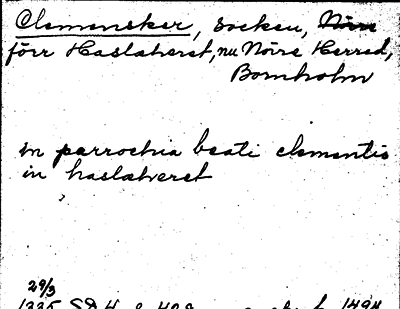 Clemensker, socken,
förr Haslatveret, nu Nörre Herred,
Bornholm
in parrochia beati clementis
in haslatveret
29/3
1335 SD 4